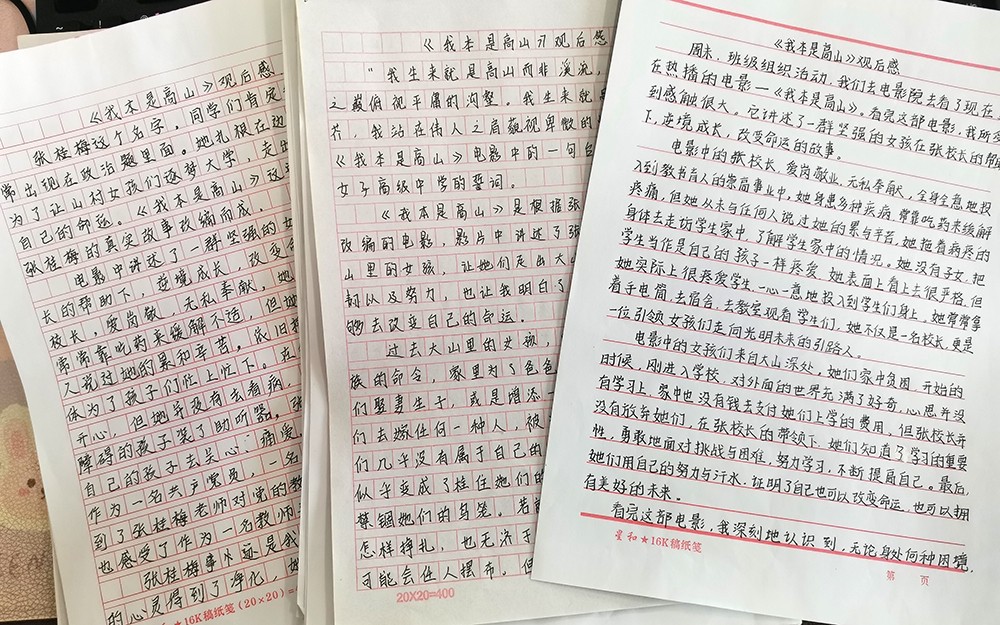 《我本是高山》观后感
张桂梅这个名字,同学们肯定
常出现在政治题里面。她扎根在边
为了让山村女孩们逐梦大学,走出
自己的命运。《我本是高山》这
张桂梅的真实故事改编而成
电影中讲述了一群坚强的女
长的帮助下,逆境成长,改变命
校长,爱岗敬,无私奉献,她
常常靠吃药来缓解不适,但她
人说过她的累和辛苦。依旧拖
体为了孩子们忙上忙下。
开心,但她并没有去看病,
障碍的孩子装了助听器。张
自己的孩子去关心、痛爱,
作为一名共产党员,一名
到了张桂梅老师对党的教
也感受了作为一名教师
张桂梅事迹是我
的心灵得到了净化,她
★16K稿纸笺(20×20)=
《我本是高山》观后感
"我生来就是高山而非溪流,
之巅俯视平庸的沟壑。我生来就是
芥,我站在伟人之肩藐视卑微的
《我本是高山》电影中的一句台
女子高级中学的誓词。
《我本是高山》是根据张
改编的电影,影片中讲述了张
山里的女孩,让她们走出大山
韧以及努力,也让我明白了
够去改变自己的命运。
过去大山里的女孩,
族的命令,家里为了爸爸
们娶妻生子,或是增添一
们去嫁任何一种人,被
们几乎没有属于自己的
似乎变成了拴住她们的
禁锢她们的鸟笼。若
怎样挣扎,也无济于
可能会任人摆布。但
20X20=400
《我本是高山》观后感
周末,班级组织活动,我们去电影院去看了现在
在热播的电影—《我本是高山》。看完这部电影,我所
到感触很大。它讲述了一群坚强的女孩在张校长的帮助
下,逆境成长,改变命运的故事。
电影中的张校长,爱岗敬业,无私奉献,全身全意地投
入到教书育人的崇高事业中,她身患多种疾病,常靠吃药来缓解
疼痛,但她从未与任何人说过她的累与辛苦。她拖着病疼的
身体去走访学生家中,了解学生家中的情况。她没有子女,把
学生当作是自己的孩子一样疼爱。她表面上看上去很严格,但
她实际上很疼爱学生,一心一意地投入到学生们身上。她常常拿
着手电筒,去宿舍,去教室观看学生们。她不仅是一名校长,更是
一位引领女孩们走向光明未来的引路人。
电影中的女孩们来自大山深处。她们家中贫困,开始的
时候,刚进入学校,对外面的世界充满了好奇,心思并没
有学习上,家中也没有钱去支付她们上学的费用,但张校长并
没有放弃她们,在张校长的带领下,她们知道了学习的重要
性,勇敢地面对挑战与困难,努力学习,不断提高自己。最后,
她们用自己的努力与汗水,证明了自己也可以改变命运,也可以拥
有美好的未来。
看完这部电影,我深刻地认识到,无论身处何种困境,
星和★16K稿纸笺
第 页